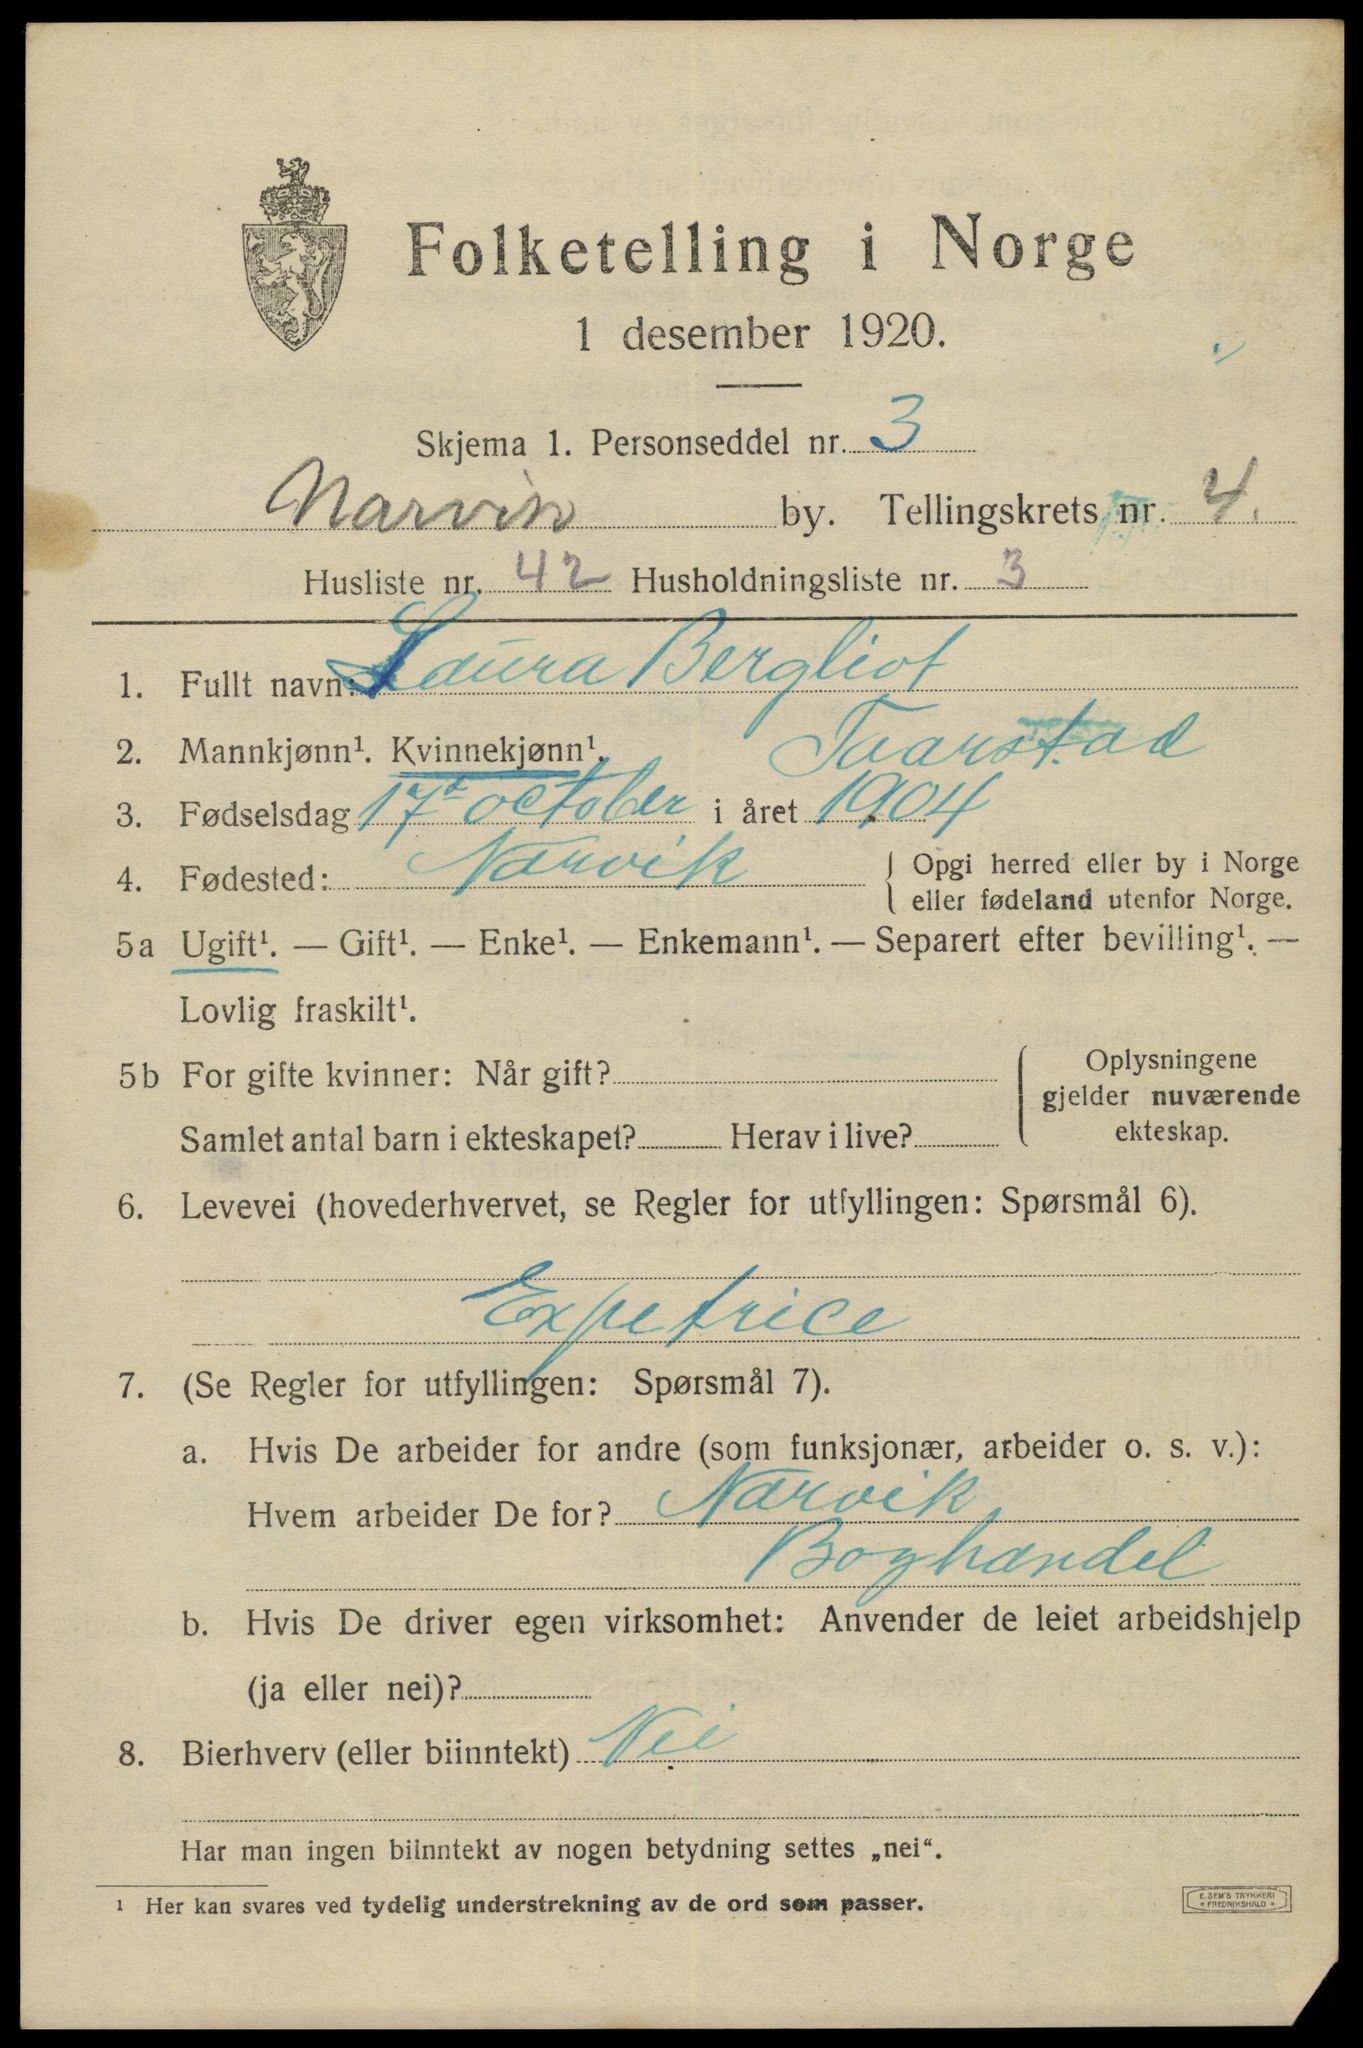 Folketelling i Norge
1 desember 1920.
Skjema 1. Personseddel nr. 3
Narvik by. Tellingskrets nr. 4.
Husliste nr. 42 Husholdningsliste nr. 3
1. Fullt navn: Laura Bergliot
Taarstad
2. Mannkjønn¹. Kvinnekjønn¹.
3. Fødselsdag 17d october i året 1904
4. Fødested: Narvik { Opgi herred eller by i Norge
eller fødeland utenfor Norge.
5a Ugift¹. — Gift¹. — Enke¹. — Enkemann¹. — Separert efter bevilling¹. —
Lovlig fraskilt¹.
5b For gifte kvinner: Når gift?
Samlet antal barn i ekteskapet? Herav i live?
Oplysningene
gjelder nuværende
ekteskap.
6. Levevei (hovederhvervet, se Regler for utfyllingen: Spørsmål 6).
Expetrice
7. (Se Regler for utfyllingen: Spørsmål 7).
a. Hvis De arbeider for andre (som funksjonær, arbeider o. s. v.):
Hvem arbeider De for? Narvik
Boghandel
b. Hvis De driver egen virksomhet: Anvender de leiet arbeidshjelp
(ja eller nei)?
8. Bierhverv (eller biinntekt) Nei
Har man ingen biinntekt av nogen betydning settes „nei“.
¹ Her kan svares ved tydelig understrekning av de ord som passer.
E. SEM'S TRYKKERI
* FREDRIKSHALD *